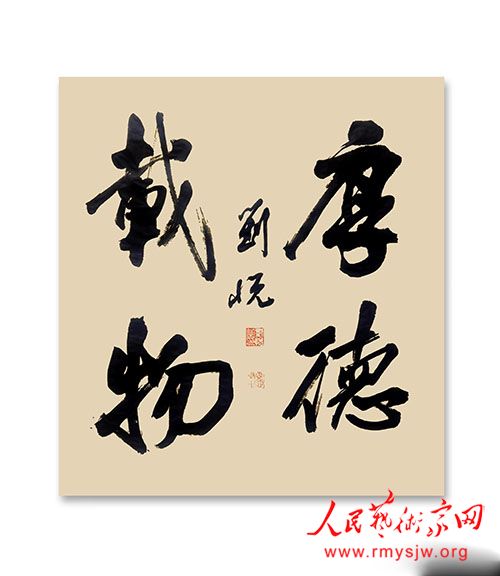 厚德
載物
劉悦
人民藝術家网
www.rmysjw.org